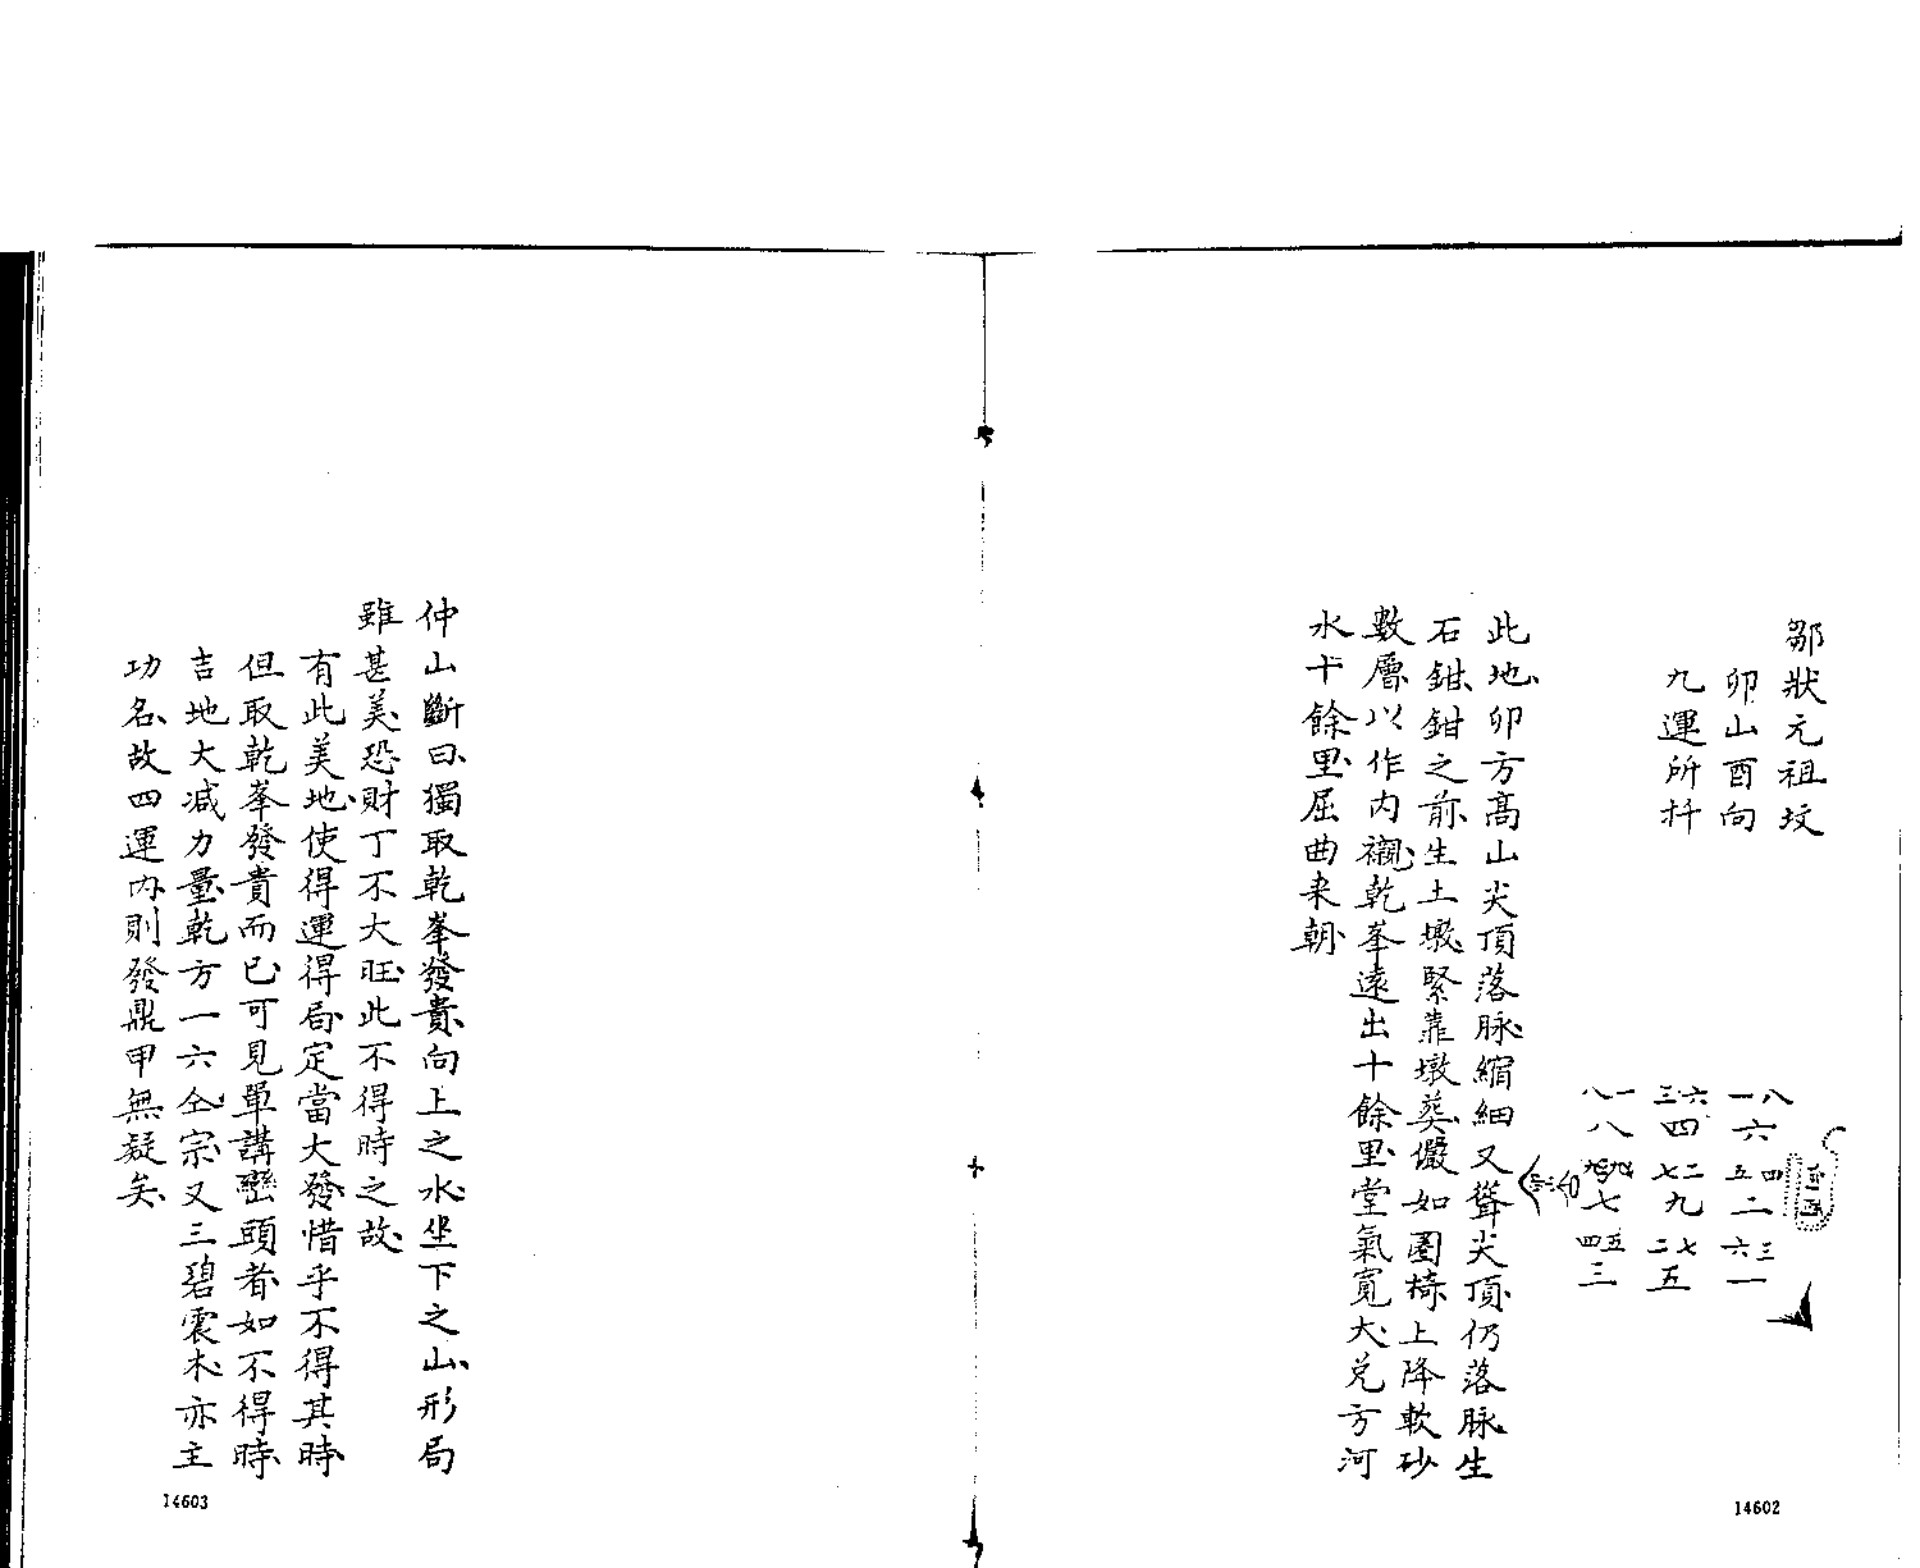 鄒狀元祖坟
卯山酉向
九運所扦
一八
六
五四
二
六三
一
三六
四
七二
九
二七
五
八一
八
七
四五
三
此地卯方高山尖頂落脉縮細又聳尖頂仍落脉生
石鉗鉗之前生土墩緊靠墩葬儼如圈椅上降軟砂
數層以作内襯乾峯遠出十餘里堂氣寬大兌方河
水十餘里屈曲来朝
14602
仲山斷曰獨取乾峯發貴向上之水坐下之山形局
雖甚美恐財丁不大旺此不得時之故
有此美地使得運得局定當大發惜乎不得其時
但取乾峯發貴而已可見單講巒頭者如不得時
吉地大減力量乾方一六仝宗又三碧震木亦主
功名故四運内則發鼎甲無疑矣
14603